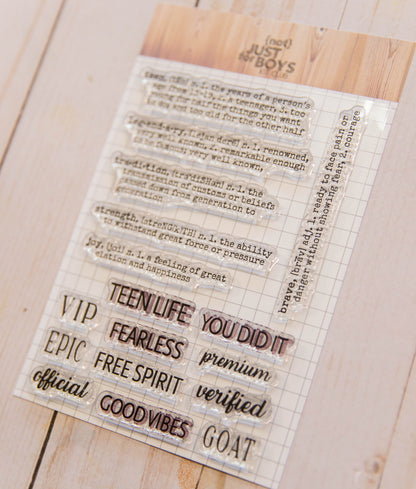 (not)
JUST
for
BOYS
teen, (tēn) n. 1. the years of a person's
age from 13-19, 2. a teenager, 3. too
young for half the things you want
to do and too old for the other half
renowned,
very well known, 2. remarkable enough
to be famous very well known,
tradition, n. 1. the
transmission of customs or beliefs
passed down from generation to
generation
strength, n. 1. the ability
to withstand great force or pressure
joy, (joi) n. 1. a feeling of great
elation and happiness
brave, (brāv) adj. 1. ready to face pain or
danger without showing fear, 2. courage
VIP
EPIC
official
TEEN LIFE
FEARLESS
FREE SPIRIT
GOOD VIBES
YOU DID IT
premium
verified
GOAT